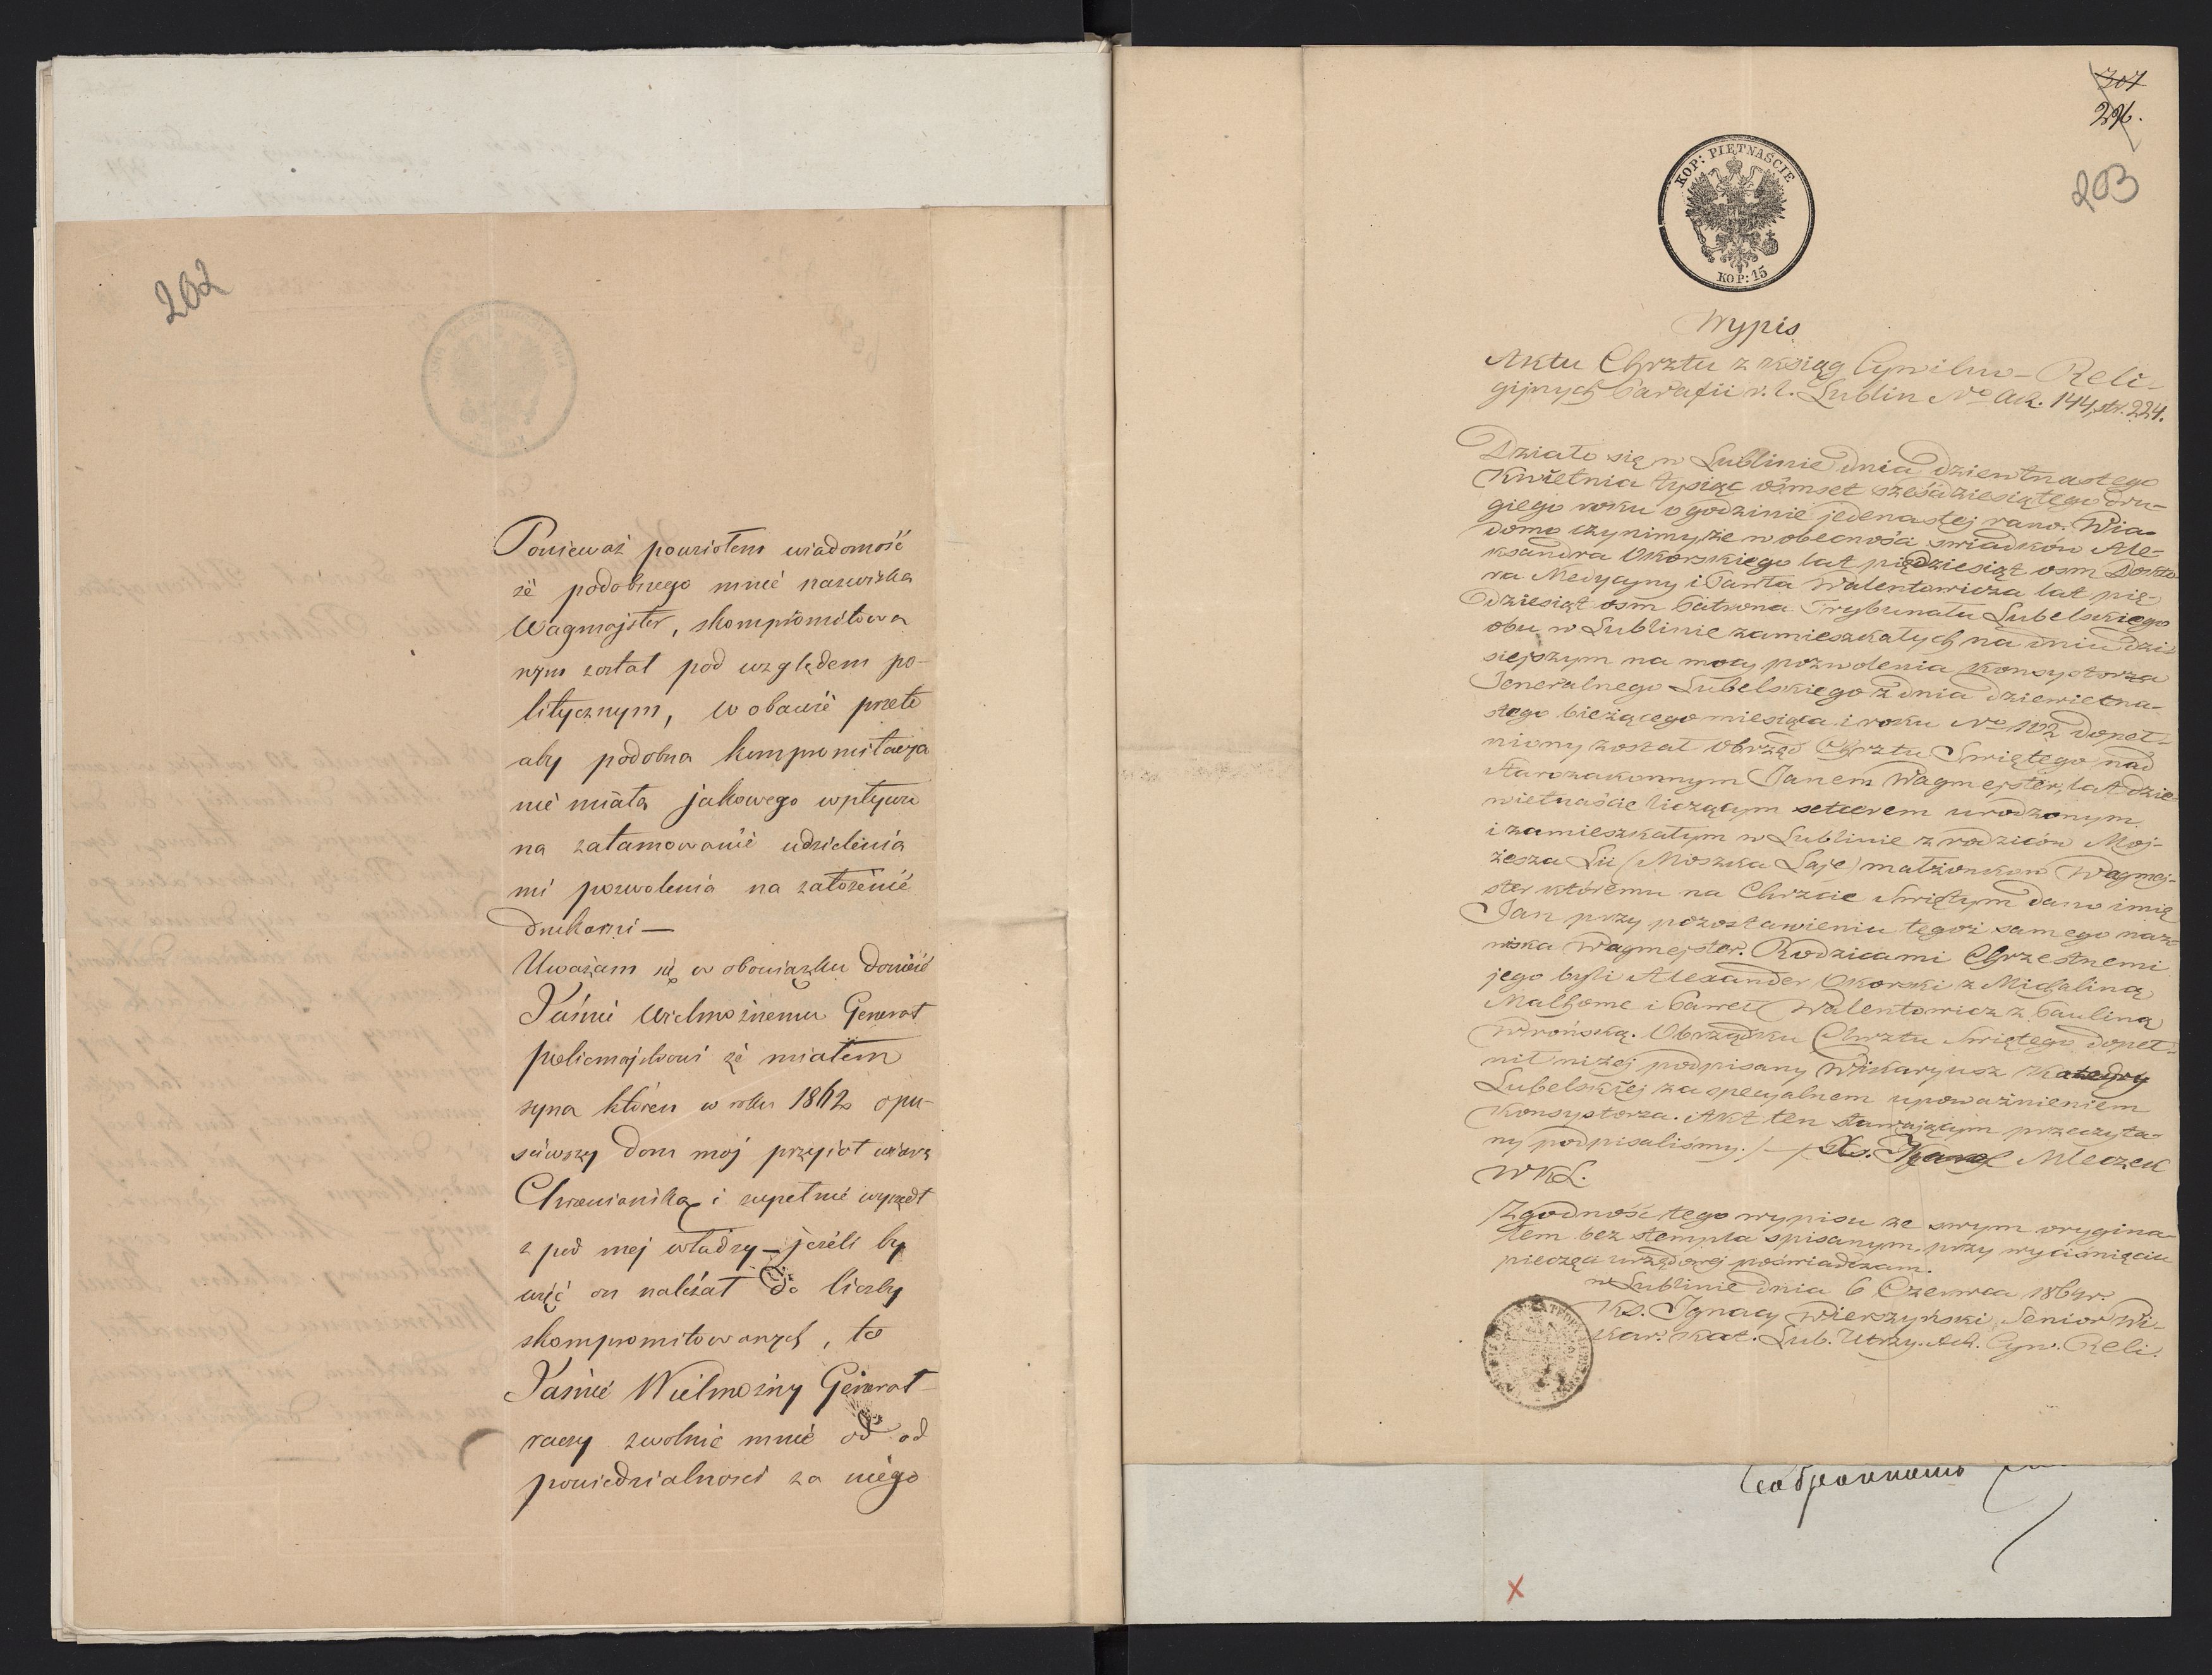 202
Ponieważ powziołem wiadomość
że podobnego mnie nazwiska
Wagmajster, skompromitowa
nym został pod względem po-
litycznym, w obawie przeto
aby podobna kompromitacya
nie miała jakowego wpływu
na zatamowanie udzielenia
mi pozwolenia na założenie
drukarni —
Uważam się w obowiązku donieść
Jaśnie Wielmożnemu Generał
policmajstrowi że miałem
syna któren w roku 1862 opu-
ściwszy dom mój przyjoł wiarę
Chrześciańską i zupełnie wyszedł
z pod mej władzy — jeżeli by
więc on należał do liczby
skompromitowanych, to
Jaśnie Wielmożny Generał
raczy zwolnić mnie od od
powiedzialności za niego
307
296.
203
KOP: PIĘTNAŚCIE
KOP: 15
Wypis
Aktu Chrztu z ksiąg Cywilno-Reli-
gijnych Parafii r. l. Lublin No Ak. 144, str. 224.
Działo się w Lublinie dnia dziewtnastego
Kwietnia tysiąc ośmset sześćdziesiątego dru-
giego roku o godzinie jedenastej rano. Wia-
domo czynimy, że w obecności świadków Ale-
ksandra Okorskiego lat pięćdziesiąt osm Dokto-
ra Medycyny i Pawła Walentowicza lat pię-
dziesiąt osm Patrona Trybunału Lubelskiego
obu w Lublinie zamieszkałych na dniu dzi-
siejszym na mocy pozwolenia Konsystorza
Jeneralnego Lubelskiego z dnia dziewietna-
stego bieżącego miesiąca i roku No 1102 dopeł-
niony został Obrzęd Chrztu Swiętego nad
starozakonnym Janem Wagmejster, lat dzie-
wietnaście liczącym seteerem urodzonym
i zamieszkałym w Lublinie z rodziców Moj-
żesza Lii (Moszka Laje) małżonków Wagmej-
ster któremu na Chrzcie Swiętym dano imię
Jan przy pozostawieniu tegoż samego naz-
wiska Wagmejster. Rodzicami Chrzestnemi
jego byli Alexander Okorski z Michaliną
Malhome i Paweł Walentowicz z Pauliną
Wrońską. Obrządku Chrztu Swiętego dopeł-
nił niżej podpisany Wikaryusz Katedry
Lubelskiej za specyalnem upoważnieniem
Konsystorza. Akt ten stawającym przeczyta-
ny podpisaliśmy. /—/ Xs. Mleczek
WKL.
Zgodność tego wypisu ze swym orygina-
łem bez stempla spisanym, przy wyciśnięciu
pieczęci urzędowej poświadczam.
w Lublinie dnia 6 Czerwca 1864r.
Ks. Ignacy Wierzyński Senior Wi-
kar. Kat. Lub. Utrzy. Ak. Cyw. Reli.